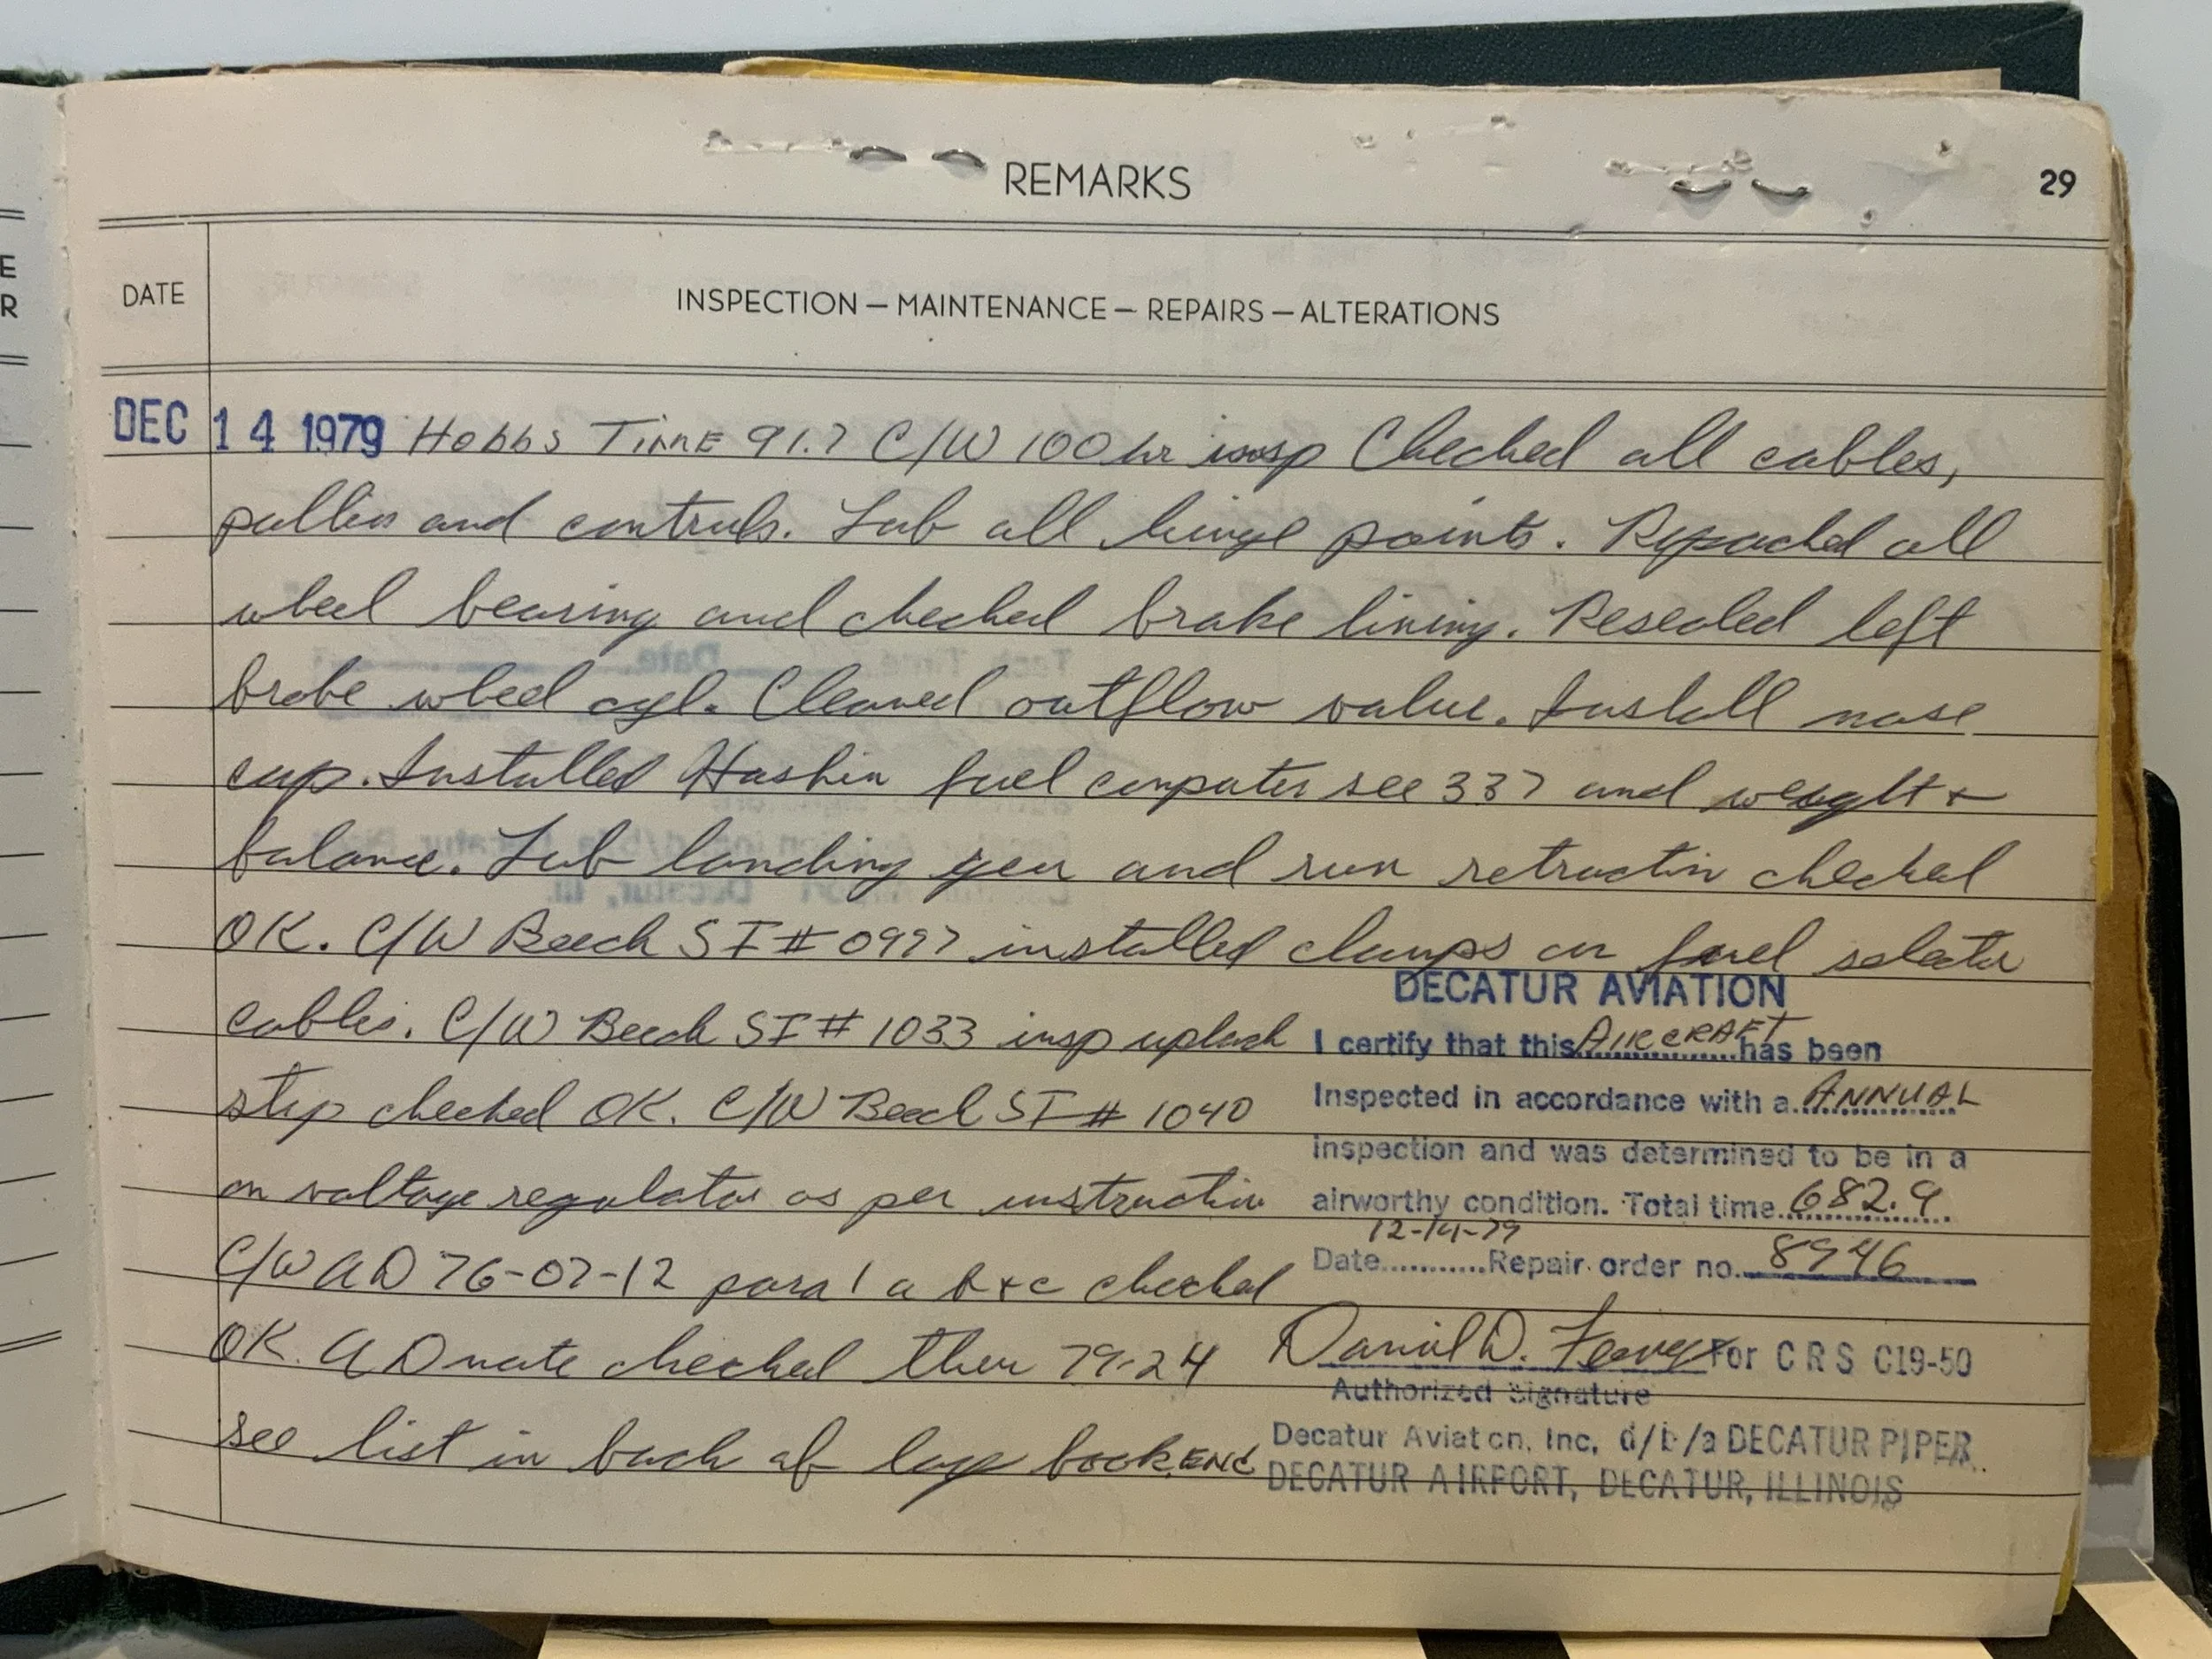 REMARKS
29
DATE
INSPECTION — MAINTENANCE — REPAIRS — ALTERATIONS
DEC 14 1979 Hobbs Time 91.7 C/W 100 hr insp Checked all cables,
pullies and controls. Lub all hinge points. Repacked all
wheel bearing and checked brake lining. Resealed left
brake wheel cyl. Cleaned outflow valve. Install nose
cap. Installed Hoskin fuel computer see 337 and weight +
balance. Lub landing gear and run retraction checked
OK. C/W Beech SI # 0997 installed clamps on fuel selector
cables. C/W Beech SI # 1033 insp uplock
stop checked OK. C/W Beech SI # 1040
on voltage regulator as per instruction
C/W AD 76-07-12 para 1 a b + c checked
OK. AD note checked thru 79-24
see list in back of log book. END
DECATUR AVIATION
I certify that this AIRCRAFT has been
Inspected in accordance with a ANNUAL
inspection and was determined to be in a
airworthy condition. Total time 682.9
Date 12-14-79 Repair order no. 8946
Daniel D. For C R S C19-50
Authorized Signature
Decatur Aviation, Inc, d/b/a DECATUR PIPER
DECATUR AIRPORT, DECATUR, ILLINOIS
E
R